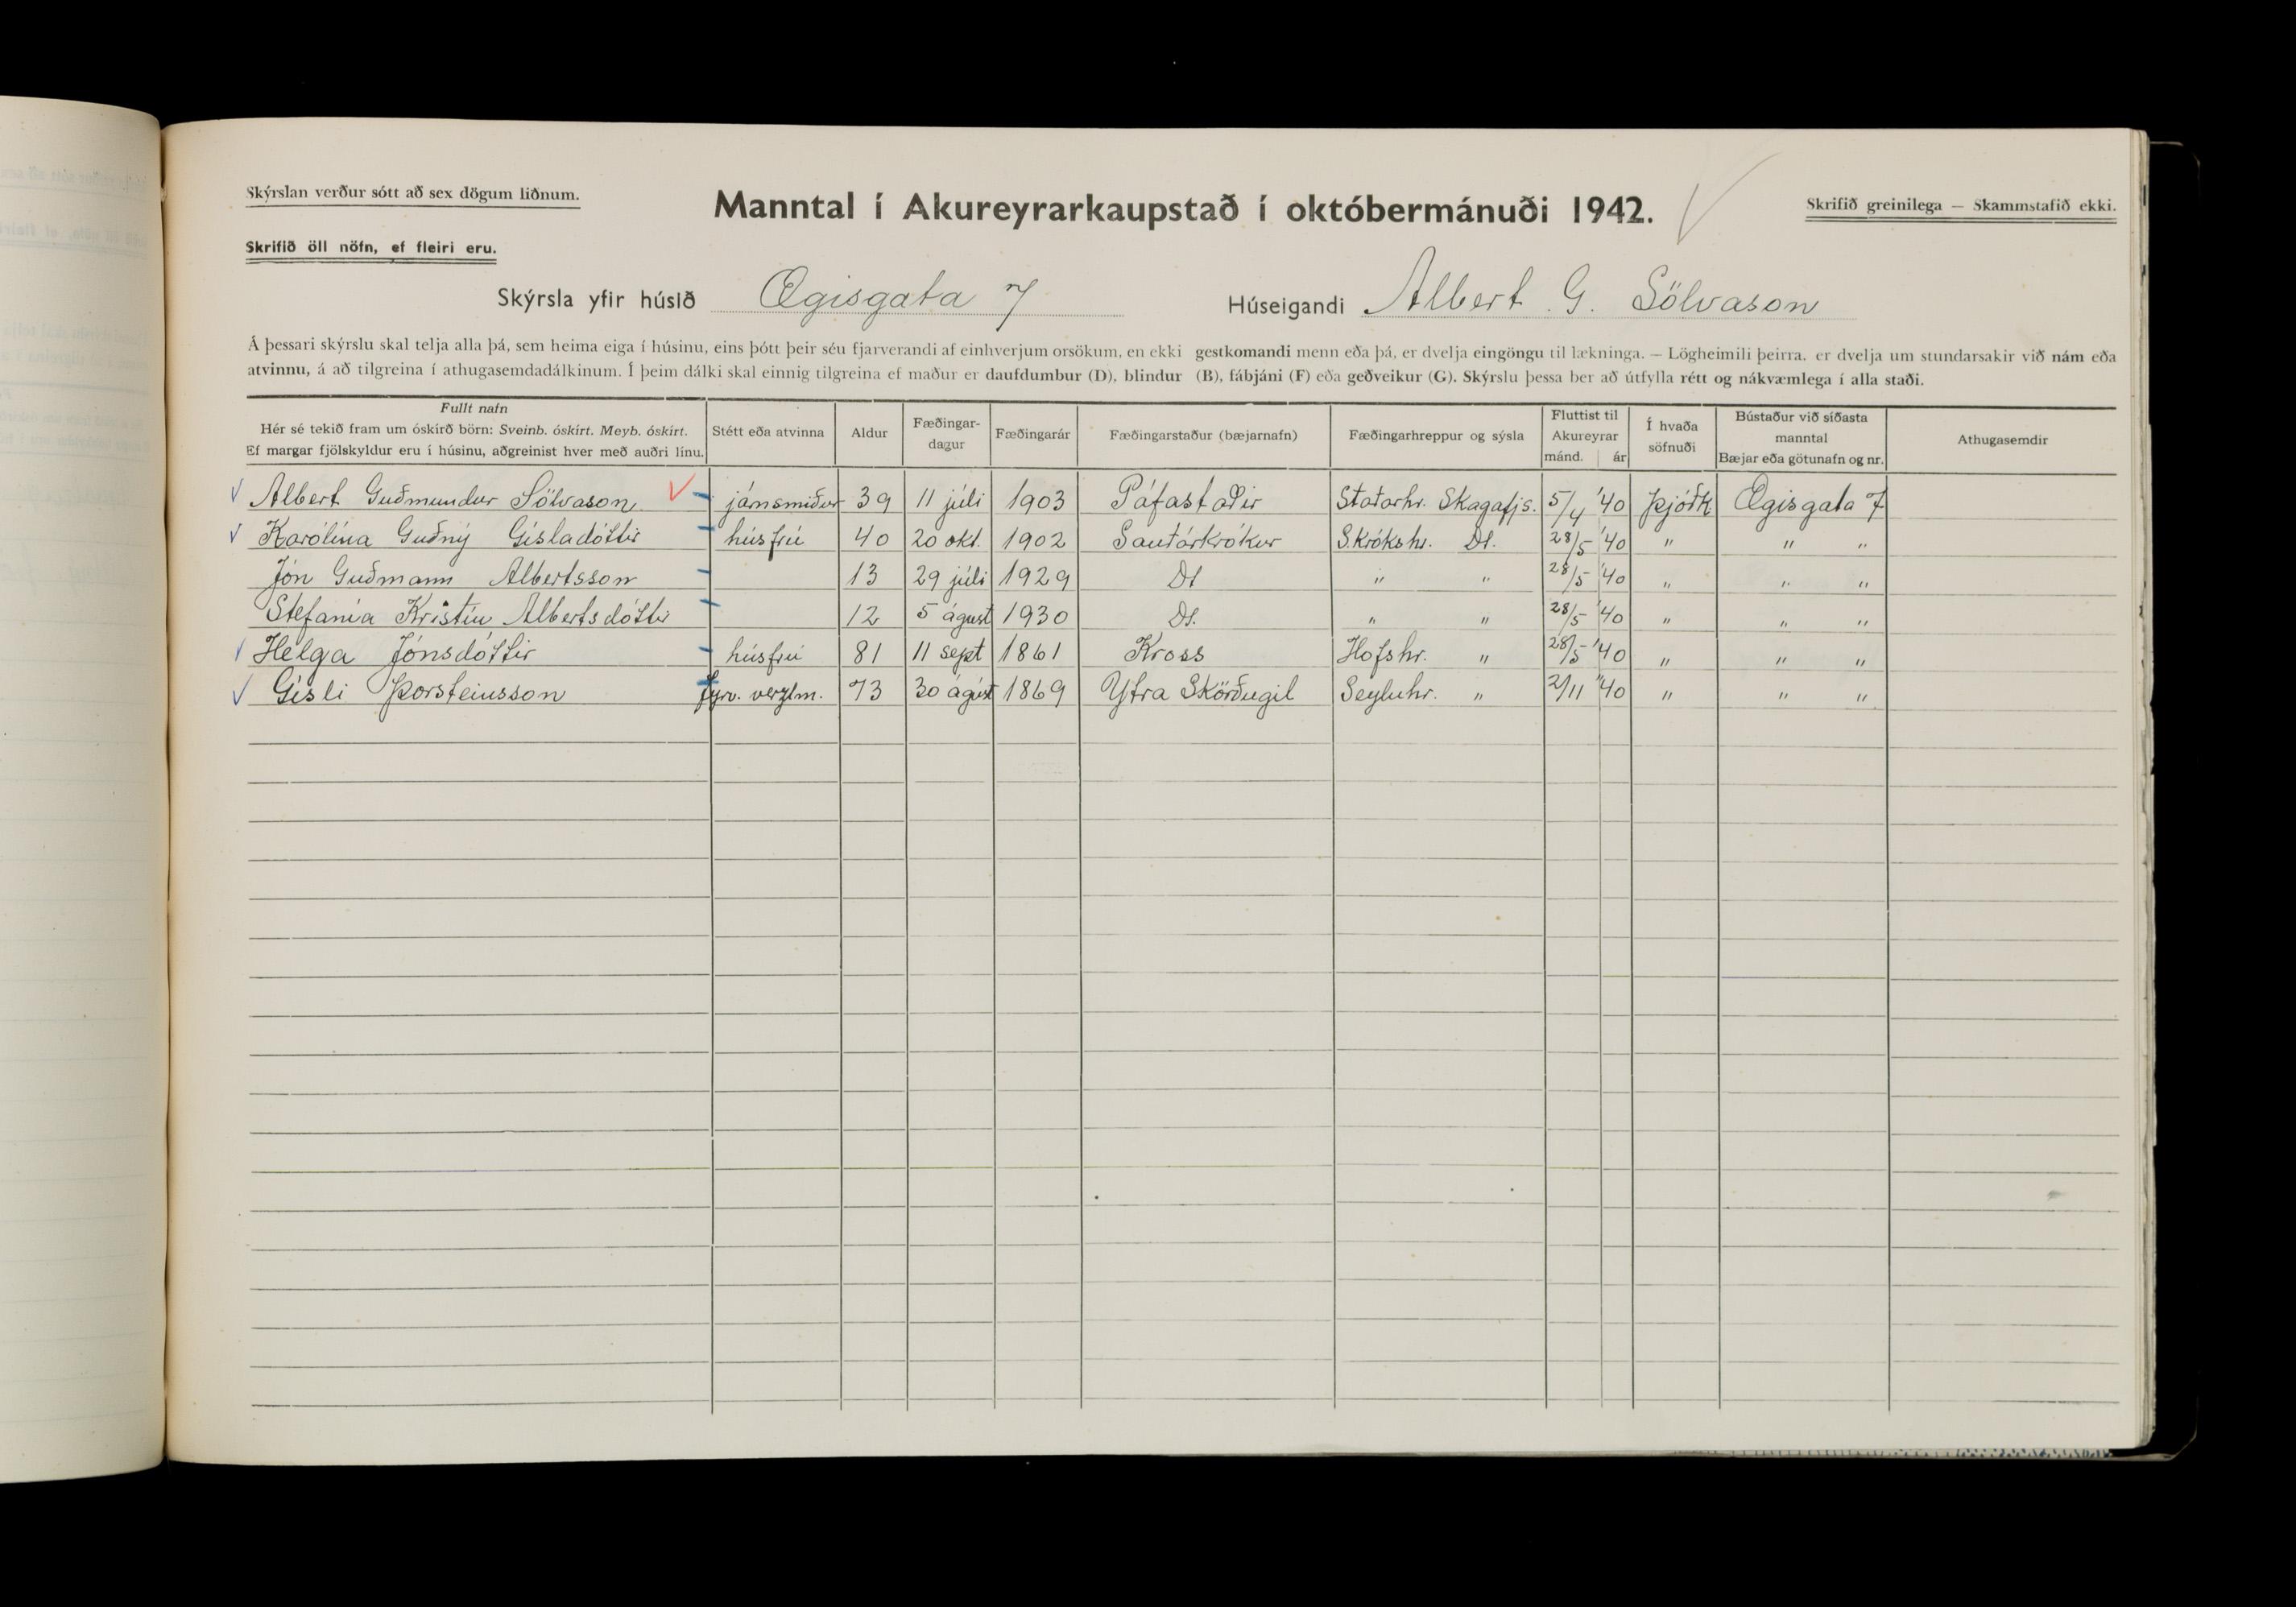 Skýrslan verður sótt að sex dögum liðnum.
Manntal í Akureyrarkaupstað í októbermánuði 1942.
Skrifið greinilega — Skammstafið ekki.
Skrifið öll nöfn, ef fleiri eru.
Skýrsla yfir húsið Ægisgata 7 Húseigandi Albert G. Sölvason
Á þessari skýrslu skal telja alla þá, sem heima eiga í húsinu, eins þótt þeir séu fjarverandi af einhverjum orsökum, en ekki gestkomandi menn eða þá, er dvelja eingöngu til lækninga. — Lögheimili þeirra, er dvelja um stundarsakir við nám eða
atvinnu, á að tilgreina í athugasemdadálkinum. Í þeim dálki skal einnig tilgreina ef maður er daufdumbur (D), blindur (B), fábjáni (F) eða geðveikur (G). Skýrslu þessa ber að útfylla rétt og nákvæmlega í alla staði.
Fullt nafn
Hér sé tekið fram um óskírð börn: Sveinb. óskírt. Meyb. óskírt.
Ef margar fjölskyldur eru í húsinu, aðgreinist hver með auðri línu.
Stétt eða atvinna
Aldur
Fæðingar-
dagur
Fæðingarár
Fæðingarstaður (bæjarnafn)
Fæðingarhreppur og sýsla
Fluttist til
Akureyrar
mánd. ár
Í hvaða
söfnuði
Bústaður við síðasta
manntal
Bæjar eða götunafn og nr.
Athugasemdir
Albert Guðmundur Sölvason járnsmiður 39 11 júlí 1903 Páfastaðir Staðarhr. Skagafjs. 5/4 '40 Þjóðk Ægisgata 7
Karólína Guðný Gísladóttir húsfrú 40 20 okt. 1902 Sauðárkrókur S.krókshr. Do. 28/5 '40 " " "
Jón Guðmann Albertsson 13 29 júlí 1929 Do " " 28/5 '40 " " "
Stefanía Kristín Albertsdóttir 12 5 ágúst 1930 Do. " " 28/5 '40 " " "
Helga Jónsdóttir húsfrú 81 11 sept 1861 Kross Hofshr. " 28/5 '40 " " "
Gísli Þorsteinsson fyrv. verzlm. 73 30 ágúst 1869 Ytra Skörðugil Seyluhr. " 2/11 '40 " " "